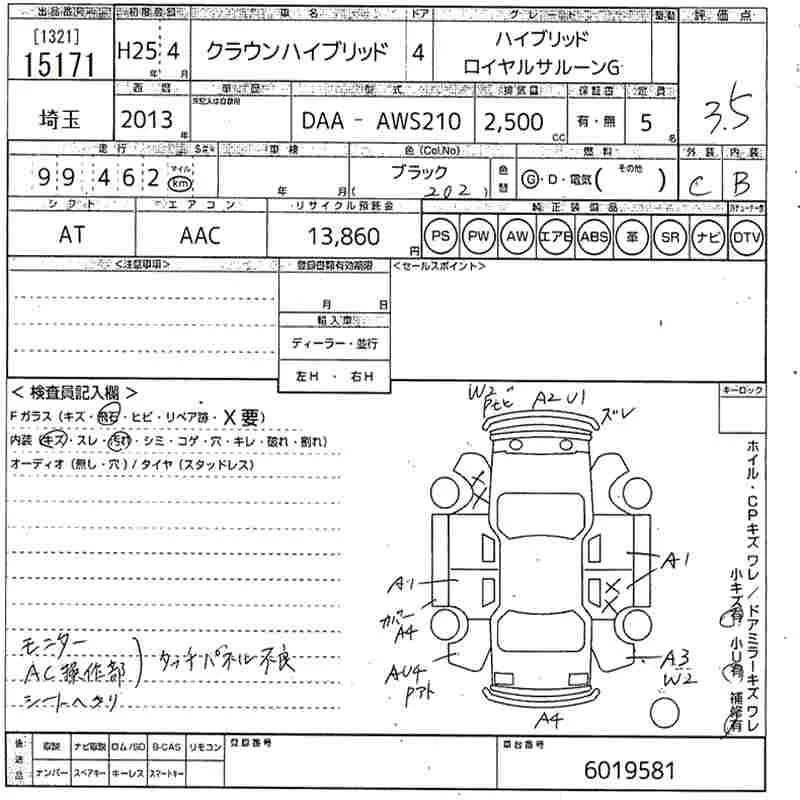 出品番号 初度登録 車名 ドア グレード 駆動 評価点
[1321]
15171 H25年 4月 クラウンハイブリッド 4 ハイブリッド
ロイヤルサルーンG
3.5
西暦 車歴 型式 排気量 保証書 定員
埼玉 2013年 DAA - AWS210 2,500cc 有・無 5名
走行 車検 色(Col.No) 燃料 外装 内装
99462 マイル km 年 月 ブラック (202) 色替 G・D・電気( その他 ) C B
シフト エアコン リサイクル預託金 純正装備品
AT AAC 13,860円 PS PW AW エアB ABS 革 SR ナビ DTV
<注意事項> 登録書類有効期限 <セールスポイント>
月 日
輸入車
ディーラー・並行
左H ・ 右H
<検査員記入欄> キーロック
Fガラス(キズ・飛石・ヒビ・リペア跡・X要)
内装(キズ・スレ・汚れ・シミ・コゲ・穴・キレ・破れ・割れ)
オーディオ(無し・穴)/タイヤ(スタッドレス)
W2 A2 U1 ズレ
A1
A1
カバー
A4
AU4
Pアト
A3
W2
A4
ホイル・CPキズワレ/ドアミラーキズワレ
小キズ有 小U有 補修有
モニター
AC操作部 タッチパネル不良
シートヘタリ
後送品 取説 ナビ取説 ロム/SD B-CAS リモコン 登録番号 車台番号
ナンバー スペアキー キーレス スマートキー 6019581